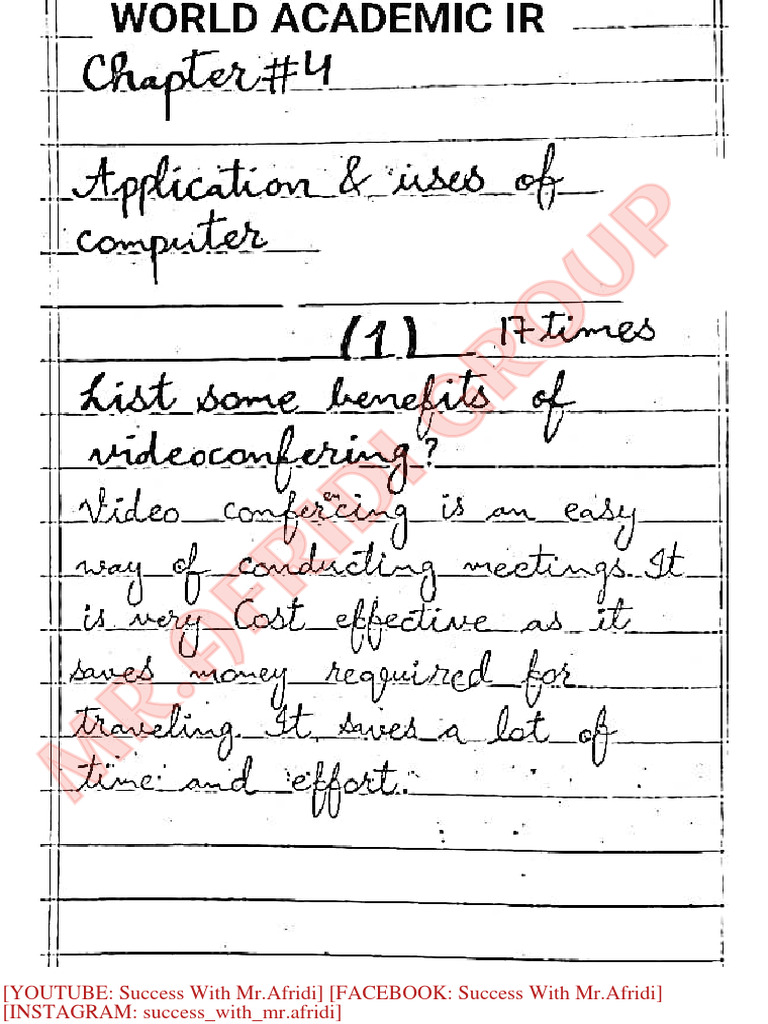 WORLD ACADEMIC IR
Chapter #4
Application & uses of
computer
(1) 17 times
List some benefits of
videoconfering?
Video conferencing is an easy
way of conducting meetings. It
is very Cost effective as it
saves money required for
traveling. It saves a lot of
time and effort.
MR.AFRIDI GROUP
[YOUTUBE: Success With Mr.Afridi] [FACEBOOK: Success With Mr.Afridi]
[INSTAGRAM: success_with_mr.afridi]